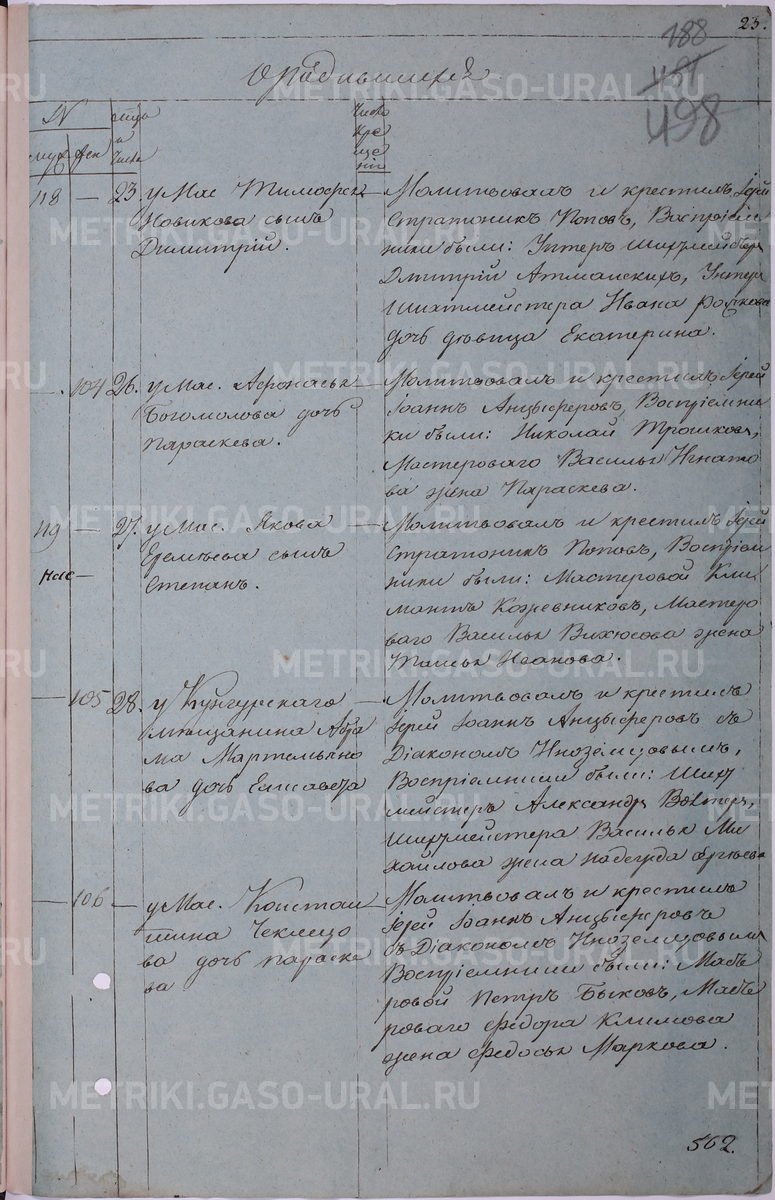 23.
188
498
О родившихся
N
муж жен
Число
креще
нiя
118 — 23. у Мас Тимофея
Новикова сынъ
Димитрiй.
Молитвовалъ и крестилъ Iерей
Стратоникъ Поповъ, Воспрiем
ники были: Унтеръ шихмейстеръ
Дмитрiй Атманскихъ, Унтеръ
Шихтмейстера Ивана
дочь дѣвица Екатерина.
— 104 26. у Мас. Афонасья
Богомолова дочь
Параскева.
Молитвовалъ и крестилъ Iерей
Iоаннъ Анцыферовъ, Воспрiемни
ки были: Николай Трошковъ,
Мастероваго Василья Игнато
ва жена Параскева.
119 — 27. у Мас. Якова
Еремѣева сынъ
Степанъ.
Молитвовалъ и крестилъ Iерей
Стратоникъ Поповъ, Воспрiем
ники были: Мастеровой Кли
мантъ Кожевниковъ, Мастеро
ваго Василья жена
Иванова.
— 105 28. у Кунгурскаго
мѣщанина Абра
ма Мартемьяно
ва дочь Елисавета
Молитвовалъ и крестилъ
Iерей Iоаннъ Анцыферовъ съ
Дiакономъ Иноземцовымъ,
Воспрiемники были: Ших
мейстеръ Александръ
Шихмейстера Василья Ми
хайлова жена Надежда
— 106 — у Мас. Констан
тина Чеклецо
ва дочь Параске
ва
Молитвовалъ и крестилъ
Iерей Iоаннъ Анцыферовъ
съ Дiакономъ Иноземцовымъ
Воспрiемники были: Масте
ровой Петръ Быковъ, Масте
роваго Федора Климова
жена Федосья Маркова.
502.
METRIKI.GASO-URAL.RU